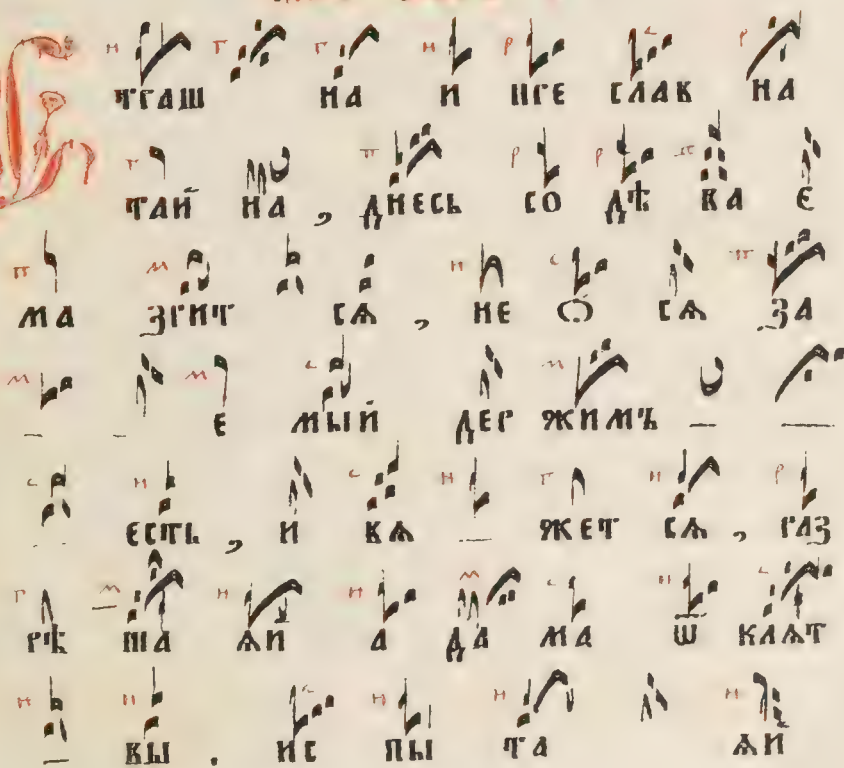 С траш на и пре слав на
тай на , днесь со дѣ ва є
ма зрит сѧ , не ѡ сѧ за
е мый дер жимъ
есть , и вѧ жет сѧ , раз
рѣ ша ѧй а да ма ѿ клѧт
вы . ис пы та ѧй